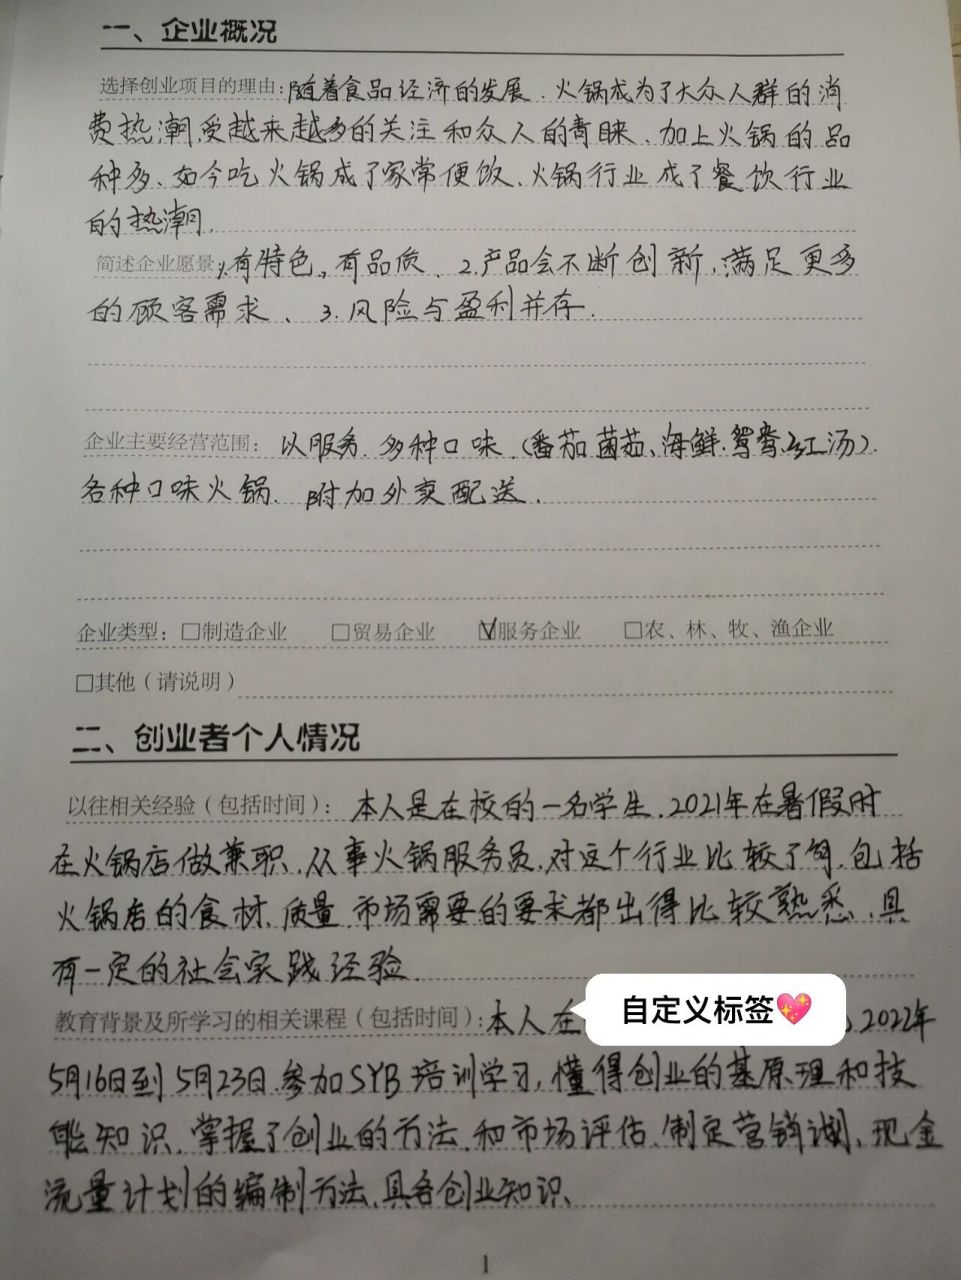 一、企业概况
选择创业项目的理由：随着食品经济的发展、火锅成为了大众人群的消
费热潮,受越来越多的关注和众人的青睐、加上火锅的品
种多、如今吃火锅成了家常便饭、火锅行业成了餐饮行业
的热潮.
简述企业愿景：1.有特色,有品质、2.产品会不断创新,满足更多
的顾客需求、3.风险与盈利并存.
企业主要经营范围：以服务.多种口味.(番茄菌茄、海鲜.鸳鸯.红汤).
各种口味火锅.附加外卖配送.
企业类型：□制造企业 □贸易企业 ☑服务企业 □农、林、牧、渔企业
□其他（请说明）
二、创业者个人情况
以往相关经验（包括时间）：本人是在校的一名学生.2021年在暑假时
在火锅店做兼职.从事火锅服务员.对这个行业比较了解.包括
火锅店的食材.质量.市场需要的要求都出得比较熟悉.具
有一定的社会实践经验.
教育背景及所学习的相关课程（包括时间）：本人在
自定义标签💖
2022年
5月16日到5月23日.参加SYB培训学习,懂得创业的基原理和技
能知识.掌握了创业的方法.和市场评估.制定营销计划、现金
流量计划的编制方法.具备创业知识、
1